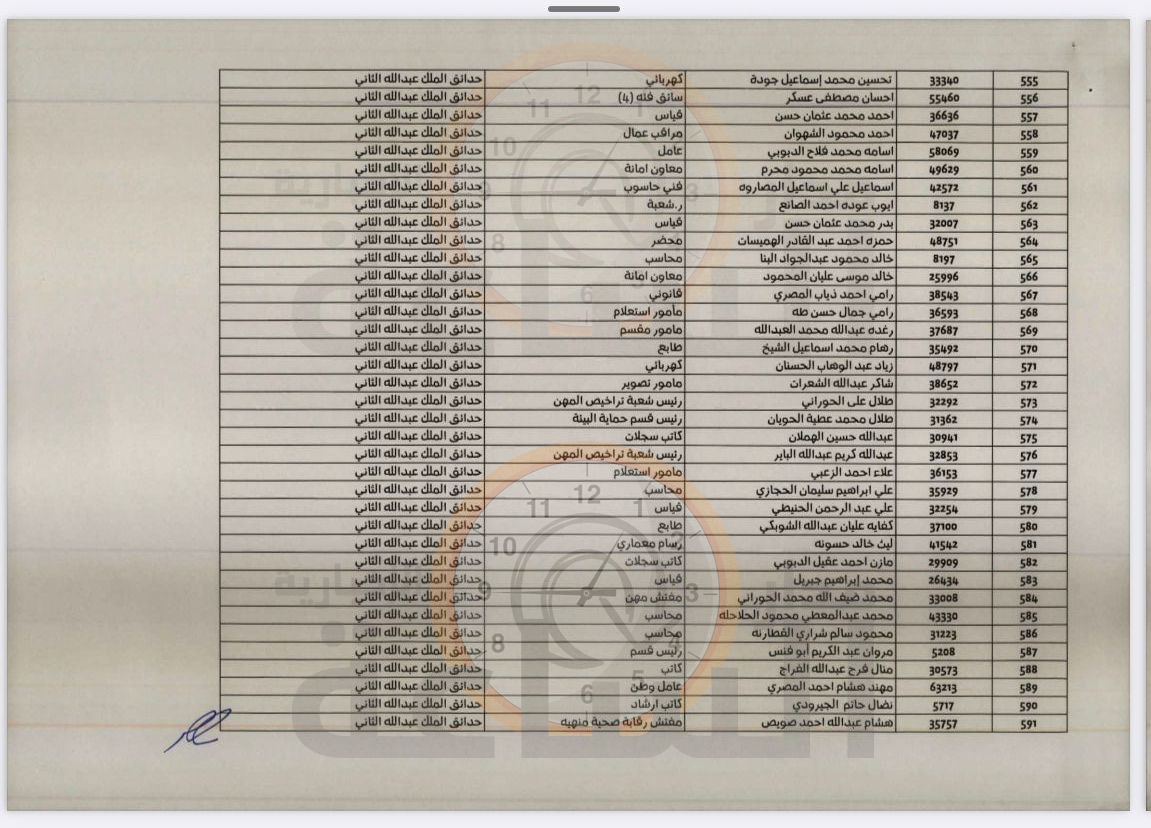 555 33340 تحسين محمد إسماعيل جودة كهربائي حدائق الملك عبدالله الثاني
556 55460 احسان مصطفى عسكر سائق فئه (4) حدائق الملك عبدالله الثاني
557 36636 احمد محمد عثمان حسن قياس حدائق الملك عبدالله الثاني
558 47037 احمد محمود الشهوان مراقب عمال حدائق الملك عبدالله الثاني
559 58069 اسامه محمد فلاح الدبوبي عامل حدائق الملك عبدالله الثاني
560 49629 اسامه محمد محمود محرم معاون امانة حدائق الملك عبدالله الثاني
561 42572 اسماعيل علي اسماعيل المصاروه فني حاسوب حدائق الملك عبدالله الثاني
562 8137 ايوب عوده احمد الصانع ر.شعبة حدائق الملك عبدالله الثاني
563 32007 بدر محمد عثمان حسن قياس حدائق الملك عبدالله الثاني
564 48751 حمزه احمد عبد القادر الهميسات محضر حدائق الملك عبدالله الثاني
565 8197 خالد محمود عبدالجواد البنا محاسب حدائق الملك عبدالله الثاني
566 25996 خالد موسى عليان المحمود معاون امانة حدائق الملك عبدالله الثاني
567 38543 رامي احمد ذياب المصري قانوني حدائق الملك عبدالله الثاني
568 36593 رامي جمال حسن طه مأمور استعلام حدائق الملك عبدالله الثاني
569 37687 رغده عبدالله محمد العبدالله مامور مقسم حدائق الملك عبدالله الثاني
570 35492 رهام محمد اسماعيل الشيخ طابع حدائق الملك عبدالله الثاني
571 48797 زياد عبد الوهاب الحسنان كهربائي حدائق الملك عبدالله الثاني
572 38652 شاكر عبدالله الشعرات مامور تصوير حدائق الملك عبدالله الثاني
573 32292 طلال على الحوراني رئيس شعبة تراخيص المهن حدائق الملك عبدالله الثاني
574 31362 طلال محمد عطية الحويان رئيس قسم حماية البيئة حدائق الملك عبدالله الثاني
575 30941 عبدالله حسين الهملان كاتب سجلات حدائق الملك عبدالله الثاني
576 32853 عبدالله كريم عبدالله الباير رئيس شعبة تراخيص المهن حدائق الملك عبدالله الثاني
577 36153 علاء احمد الزعبي مامور استعلام حدائق الملك عبدالله الثاني
578 35929 علي ابراهيم سليمان الحجازي محاسب حدائق الملك عبدالله الثاني
579 32254 علي عبد الرحمن الحنيطي قياس حدائق الملك عبدالله الثاني
580 37100 كفايه عليان عبدالله الشوبكي طابع حدائق الملك عبدالله الثاني
581 41542 ليث خالد حسونه رسام معماري حدائق الملك عبدالله الثاني
582 29909 مازن احمد عقيل الدبوبي كاتب سجلات حدائق الملك عبدالله الثاني
583 26434 محمد إبراهيم جبريل قياس حدائق الملك عبدالله الثاني
584 33008 محمد ضيف الله محمد الحوراني مفتش مهن حدائق الملك عبدالله الثاني
585 43330 محمد عبدالمعطي محمود الحلاحله محاسب حدائق الملك عبدالله الثاني
586 31223 محمود سالم شراري القطارنه محاسب حدائق الملك عبدالله الثاني
587 5208 مروان عبد الكريم أبو فنس رئيس قسم حدائق الملك عبدالله الثاني
588 30573 منال فرح عبدالله الفراج كاتب حدائق الملك عبدالله الثاني
589 63213 مهند هشام احمد المصري عامل وطن حدائق الملك عبدالله الثاني
590 5717 نضال حاتم الجيرودي كاتب ارشاد حدائق الملك عبدالله الثاني
591 35757 هشام عبدالله احمد صويص مفتش رقابة صحية منهيه حدائق الملك عبدالله الثاني